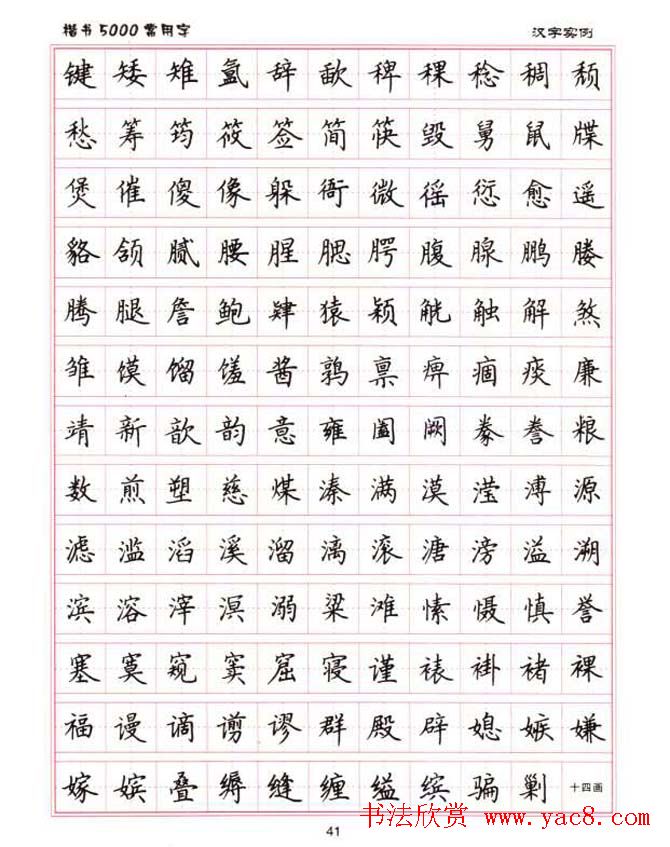 楷书5000常用字 汉字实例
键 矮 雉 氲 辞 歃 稗 稞 稔 稠 颓
愁 筹 筠 筱 签 简 筷 毁 舅 鼠 牒
煲 催 傻 像 躲 衙 微 徭 愆 愈 遥
貉 颌 腻 腰 腥 腮 腭 腹 腺 鹏 媵
腾 腿 詹 鲍 肄 猿 颖 觥 触 解 煞
雏 馍 馏 馐 酱 鹑 禀 痹 痼 痰 廉
靖 新 歆 韵 意 雍 阖 阙 豢 誊 粮
数 煎 塑 慈 煤 溱 满 漠 滢 溥 源
滤 滥 滔 溪 溜 漓 滚 溏 滂 溢 溯
滨 溶 滓 溟 溺 粱 滩 愫 慑 慎 誉
塞 寞 窥 窦 窟 寝 谨 裱 褂 褚 裸
福 谩 谪 谫 谬 群 殿 辟 媳 嫉 嫌
嫁 嫔 叠 缛 缝 缠 缢 缤 骗 剿 十四画
书法欣赏 www.yac8.com
41